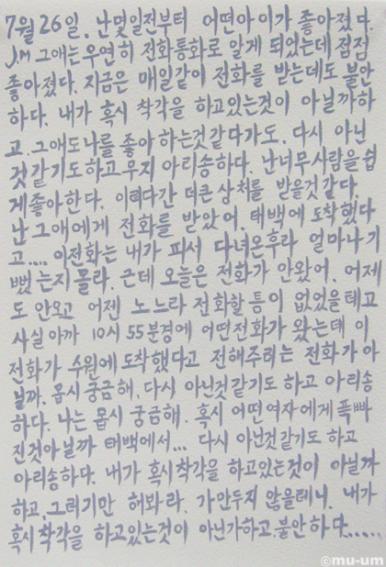 7월 26일. 난 몇일전부터 어떤아이가 좋아졌다.
J.M 그애는 우연히 전화통화로 알게 되었는데 점점
좋아졌다. 지금은 매일같이 전화를 받는데도 불안
하다. 내가 혹시 착각을 하고있는것이 아닐까하
고. 그애도 나를 좋아하는것 같다가도. 다시 아닌
것 같기도하고 무지 아리송하다. 난 너무 사람을 쉽
게 좋아한다. 이러다간 더큰 상처를 받을것 같다
난 그애에게 전화를 받았어. 태백에 도착했다
고.... 이전화는 내가 피서 다녀온후라 얼마나 기
뻤는지 몰라. 근데 오늘은 전화가 안왔어. 어제
도 안오고 어젠 노느라 전화할 틈이 없었을테고
사실 아까 10시 55분경에 어떤전화가 왔는데 이
전화가 수원에 도착했다고 전해주려는 전화가 아
닐까. 몹시 궁금해. 다시 아닌것 같기도 하고 아리송
하다. 나는 몹시 궁금해. 혹시 어떤여자에게 푹빠
진것아닐까 태백에서... 다시 아닌것같기도 하고
아리송하다. 내가 혹시착각을 하고있는것이 아닐까
하고. 그러기만 해봐라. 가만두지 않을테니. 내가
혹시 착각을 하고있는것이 아닌가하고. 불안하다.....
©mu-um